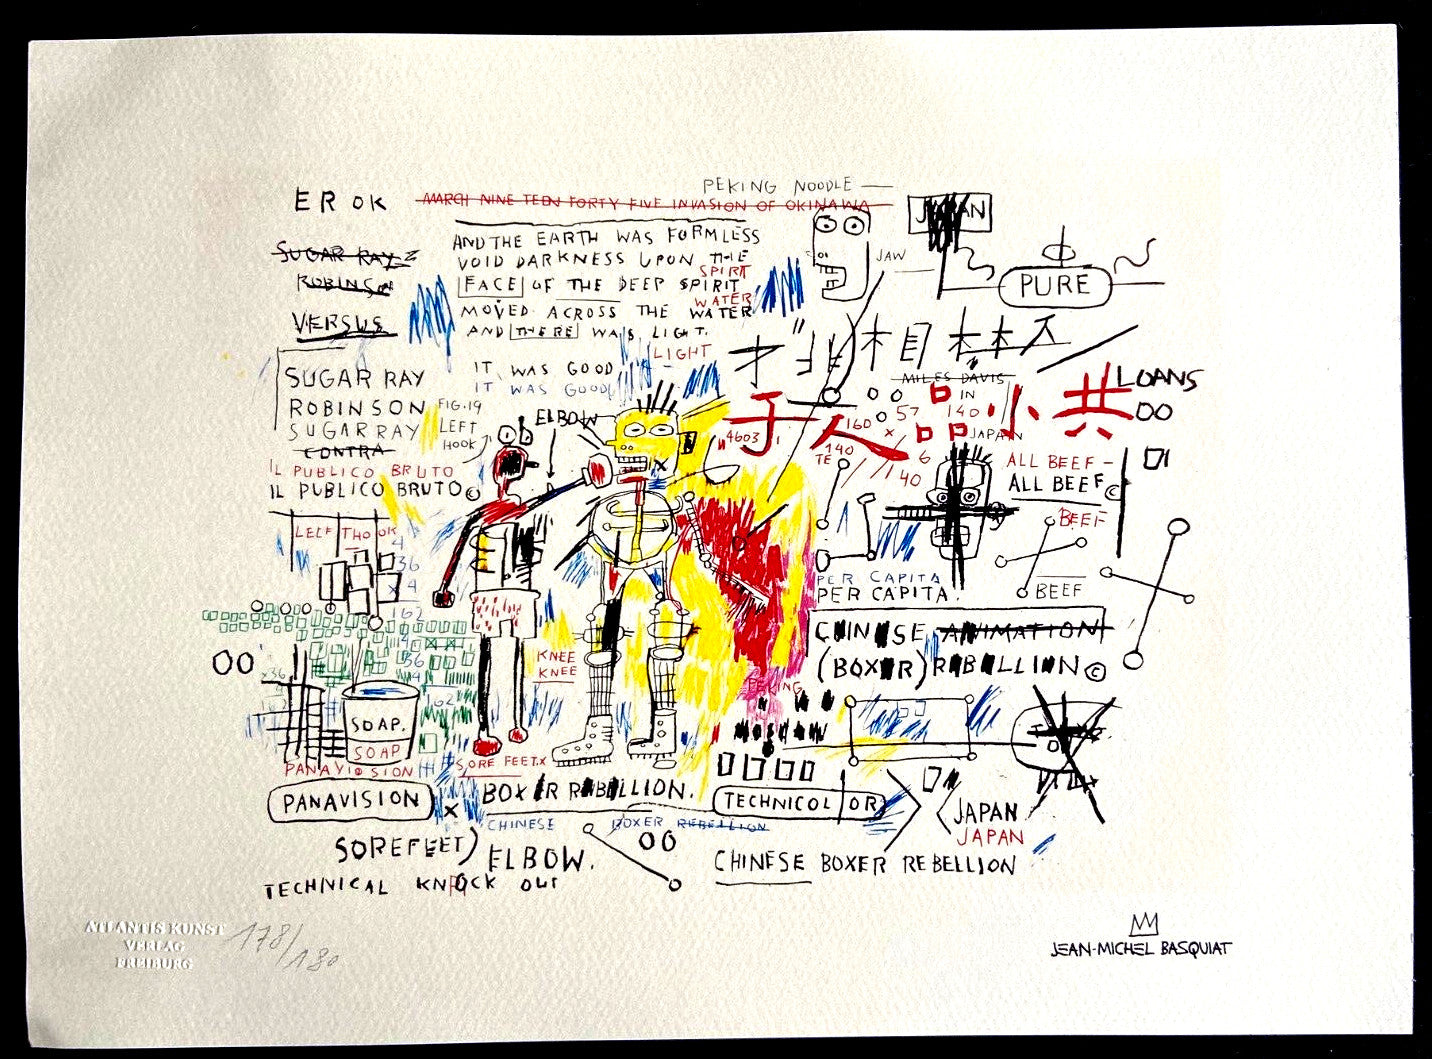 PEKING NOODLE
EROK
MARCH NINE TEEN FORTY FIVE INVASION OF OKINAWA
JAPAN
SUGAR RAY
ROBINSON
VERSUS
AND THE EARTH WAS FORMLESS
VOID DARKNESS UPON THE
SPIRIT
FACE OF THE DEEP SPIRIT
WATER
MOVED ACROSS THE WATER
AND THERE WAS LIGHT.
LIGHT
JAW
PURE
IT WAS GOOD
IT WAS GOOD
SUGAR RAY
ROBINSON
SUGAR RAY
CONTRA
IL PUBLICO BRUTO
IL PUBLICO BRUTO©
FIG.19
LEFT
HOOK
ELBOW
MILES DAVIS
LOANS
OO
人 品 小 共
IN
57
140
160
4603
JAPAN
140
TE
6
40
ALL BEEF-
ALL BEEF©
BEEF
BEEF
4
36
x 4
162
PER CAPITA
PER CAPITA.
CHINESE ANIMATION
(BOXER) REBELLION©
OO
KNEE
KNEE
PEKING
SOAP.
SOAP
SORE FEET.X
PANAVISION
BOXER REBELLION.
TECHNICOLOR
CHINESE BOXER REBELLION
OO
JAPAN
JAPAN
SOREFEET)
ELBOW.
CHINESE BOXER REBELLION
TECHNICAL KNOCK OUT
ATLANTIS KUNST
VERLAG
FREIBURG
178/180
JEAN-MICHEL BASQUIAT